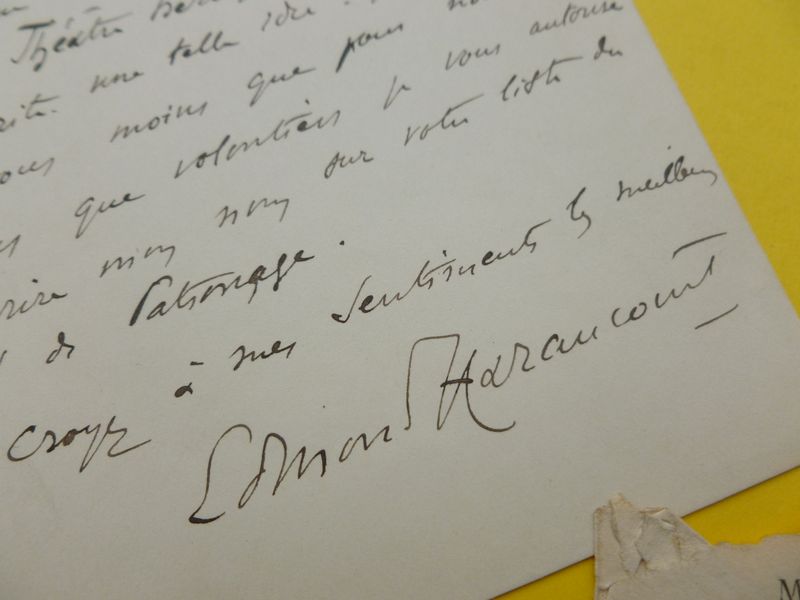 Théâtre
une telle idée.
moins que pour
que volontiers je vous autorise
mon nom sur votre liste du
de Patronage.
croyez à mes sentiments les meilleurs
Edmond Haraucourt
M